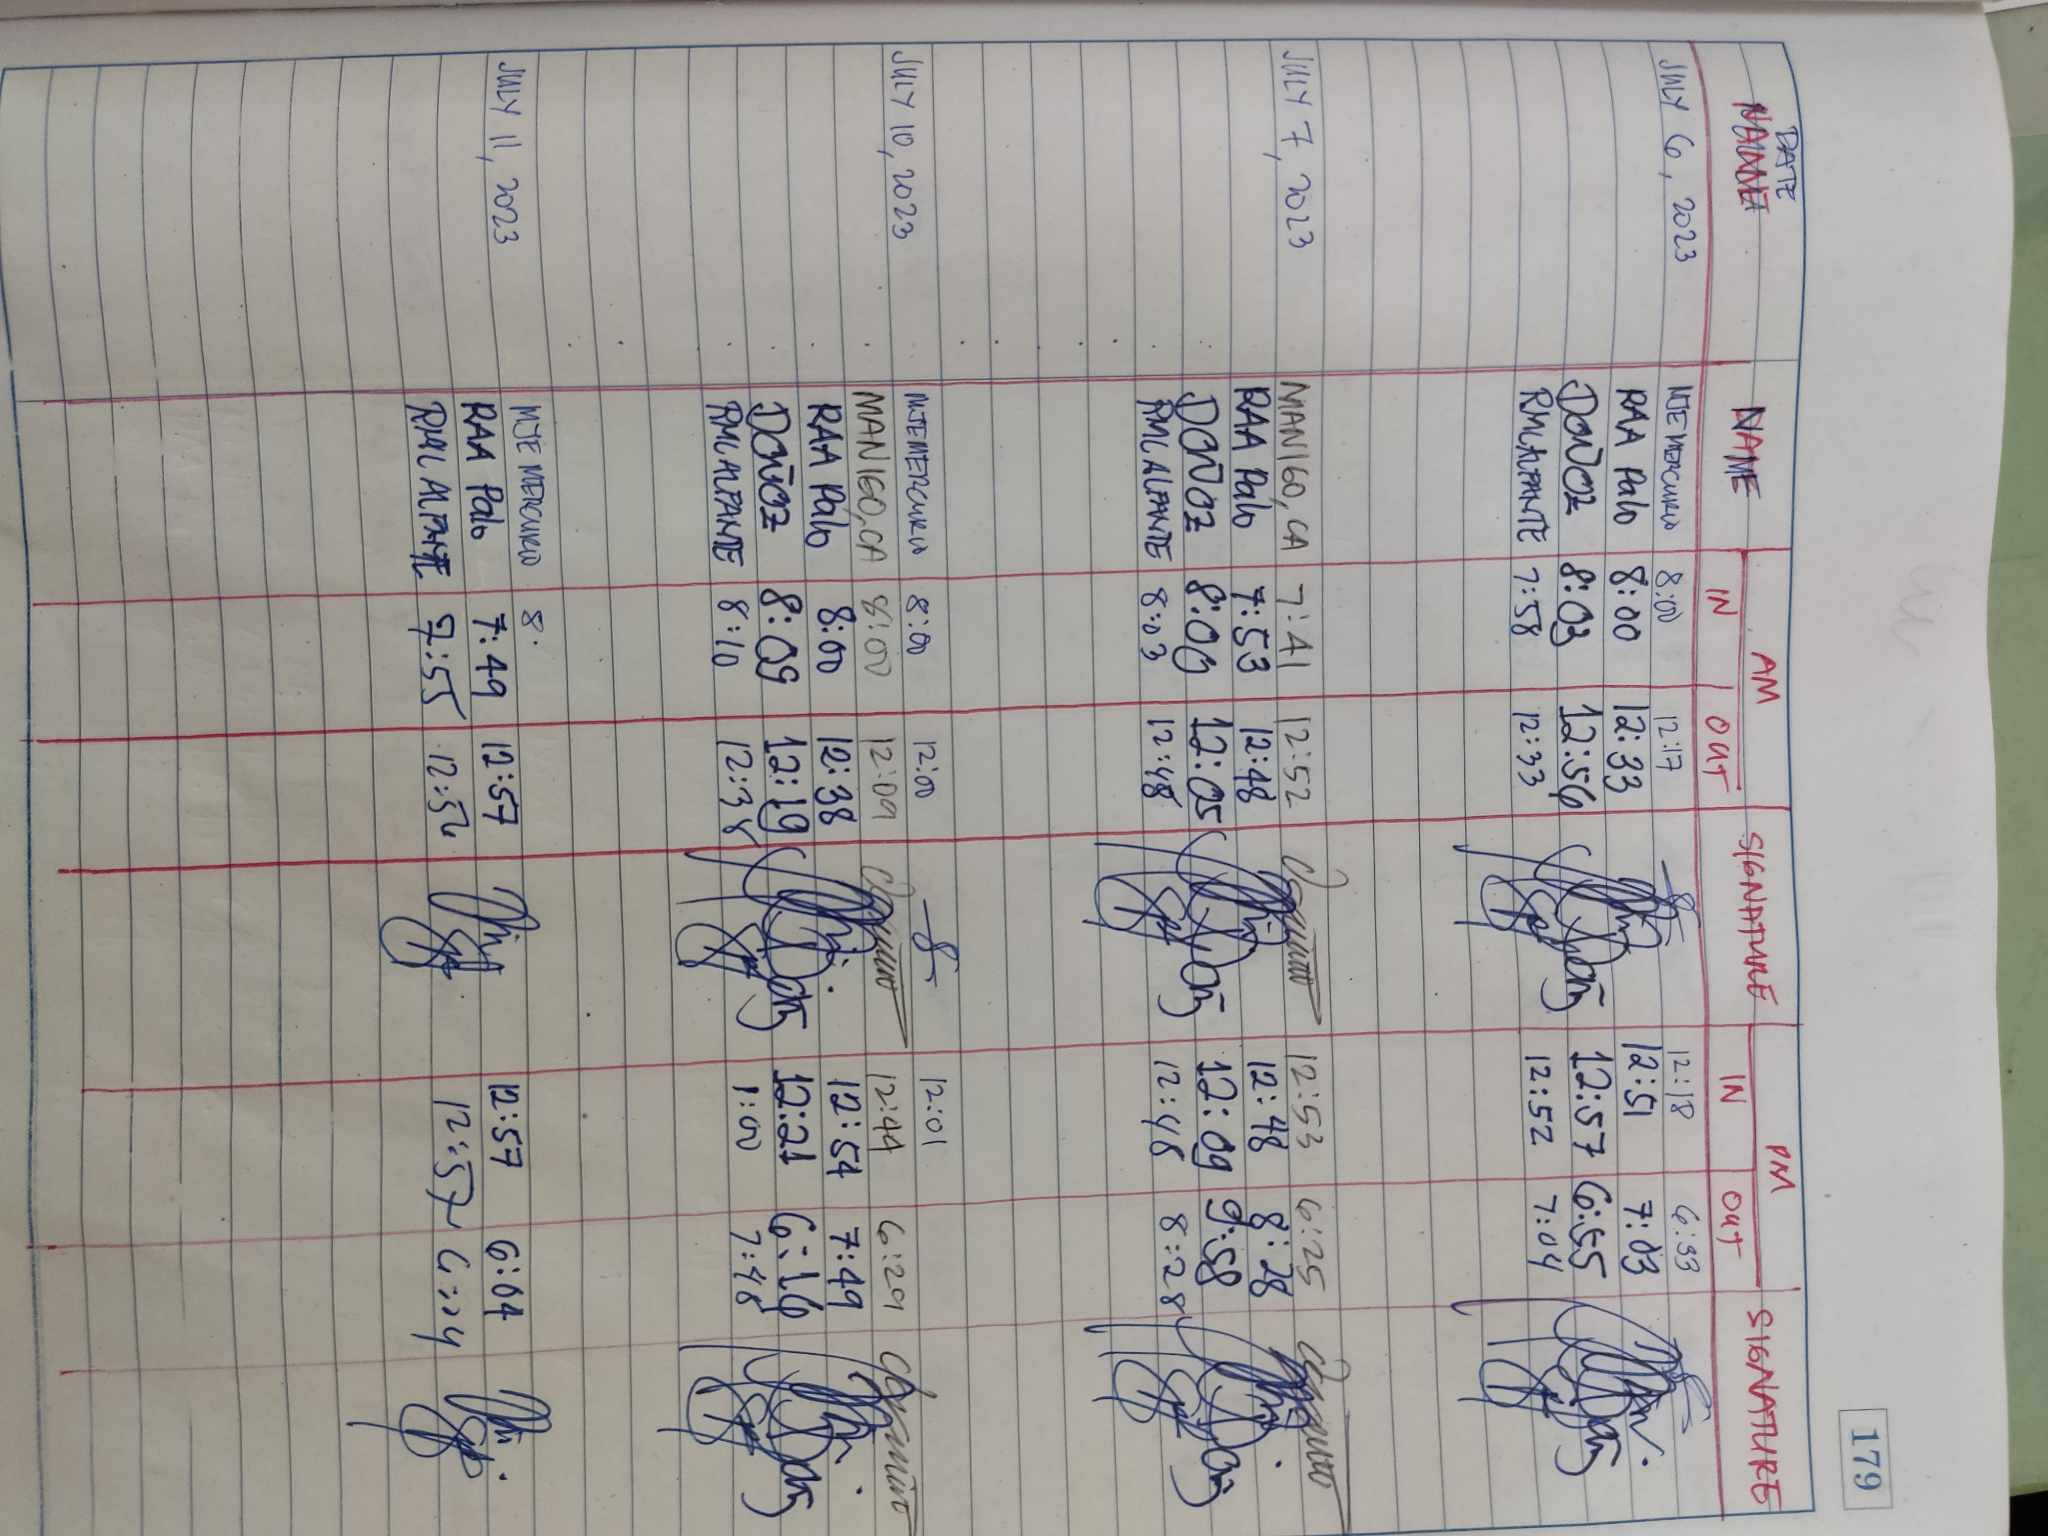 179
DATE
NAME NAME AM SIGNATURE PM SIGNATURE
IN OUT IN OUT
JULY 6, 2023 MJE MERCURIO 8:00 12:17 12:18 6:33
RAA Palo 8:00 12:33 12:51 7:03
DOÑOZ 8:03 12:56 12:57 6:55
RMLALFANTE 7:58 12:33 12:52 7:04
JULY 7, 2023 MANIGO, CA 7:41 12:52 12:53 6:25
RAA Palo 7:53 12:48 12:48 8:28
DOÑOZ 8:00 12:05 12:09 9:58
RMLALFANTE 8:03 12:48 12:48 8:28
JULY 10, 2023 MJEMERCURIO 8:00 12:00 12:01
MANIGO, CA 8:00 12:09 12:44 6:29
RAA Palo 8:00 12:38 12:54 7:49
DOÑOZ 8:09 12:19 12:21 6:16
RMLALFANTE 8:10 12:38 1:00 7:48
JULY 11, 2023 MJE MERCURIO 8:
RAA Palo 7:49 12:57 12:57 6:04
RML ALFANTE 7:55 12:56 12:57 6:04